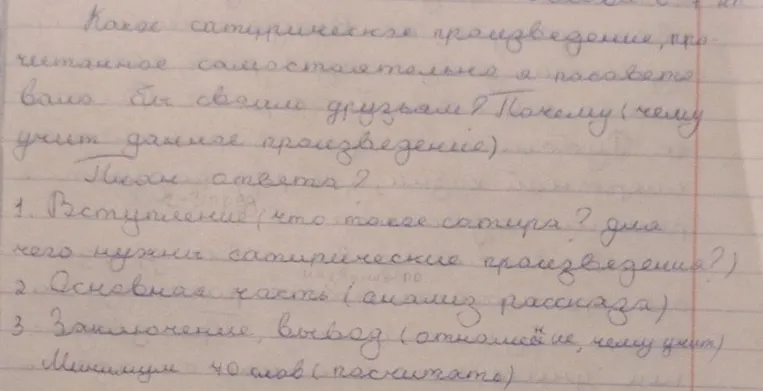 Какое сатирическое произведение, про-
читанное самостоятельно я посовето
вала бы своим друзьям? Почему (чему
учит данное произведение)
План ответа?
1. Вступление (что такое сатира? для
чего нужны сатирические произведения?)
2. Основная часть (анализ рассказа)
3 Заключение, вывод (отношение, чему учит)
Минимум 70 слов (посчитать)